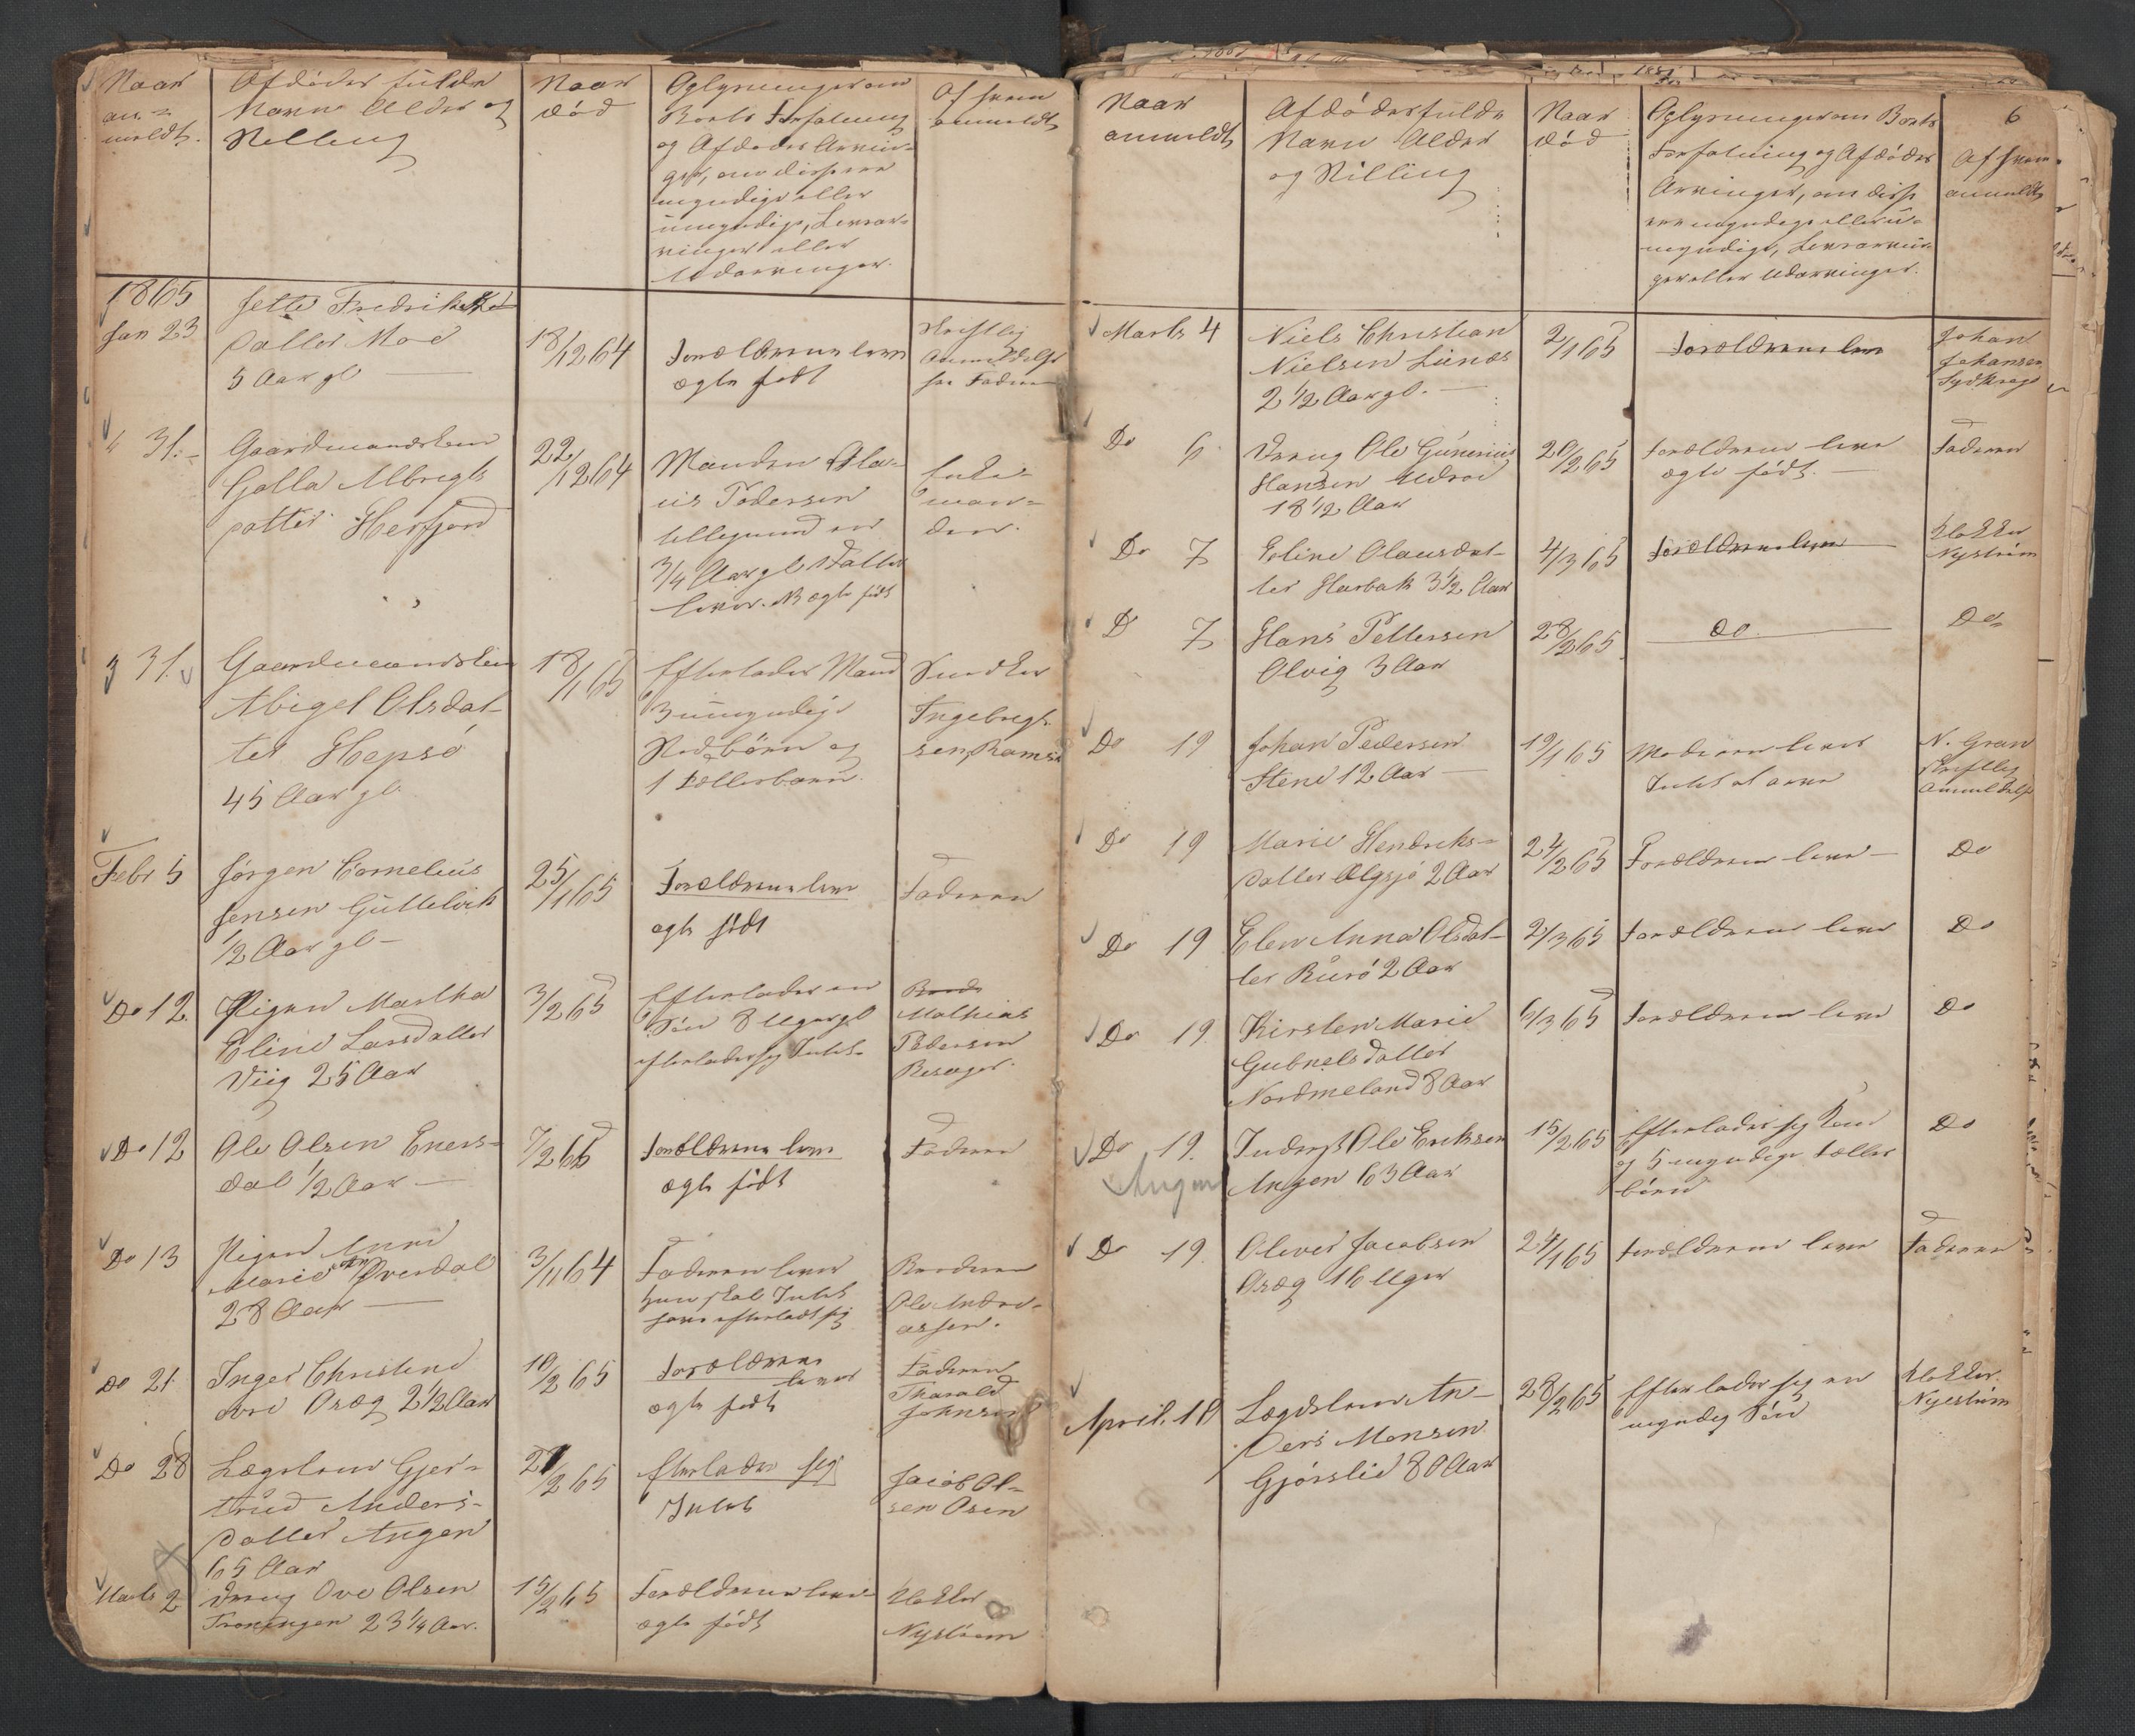 Naar
an=
meldt.
Afdødes fulde
Navn Alder og
Stilling
Naar
død
Oplysninger om
Boets Forfatning
og Afdødes Arvin-
ger, om disse ere
myndige eller
umyndige, Livsar-
vinger eller
Udarvinger.
Af hvem
anmeldt
1865
Jan 23
Jette Fredrikke
datter Moe
5 Aar gl
18/12 64
Forældrene leve
ægte født
Skriftlig
Anmeldelse
fra Faderen
" 31.
Gaardmandskone
Golla Albregts
datter Herfjord
22/12 64
Manden Ola-
us Pedersen
tilligemed en
3/4 Aar gl Datter
lever. NB ægte født
Enke-
man-
den.
" 31.
Gaardmandskone
Abigel Olsdat-
ter Hepsø
45 Aar gl.
18/1 65
Efterlader Mand
3 umyndige
Stedbørn og
1 Fællesbarn.
Ingebregt-
sen, Ramsø
Febr 5
Jørgen Cornelius
Jensen Guttelvik
1/2 Aar gl
25/1 65
Forældrene leve
ægte født
Faderen
Do 12.
Pigen Martha
Eline Larsdatter
Viig 25 Aar
3/2 65
Efterlader en
Søn 8 Uger gl
efterlader sig Intet
Mathias
Pedersen
Besager.
Do 12
Ole Olsen Eners-
dal 1/2 Aar
7/2 65
Forældrene leve
ægte født
Faderen
Do 13
Pigen Anne
Marie Øverdal
28 Aar
3/11 64
Faderen lever
hun skal Intet
have efterladt sig
Broderen
Ole Andre-
assen.
Do 21
Inger Christine
Oræg 2 1/2 Aar
10/2 65
Forældrene
lever
ægte født
Faderen
Tharald
Johnsen
Do 28
Lægdslem Gjer-
trud Anders-
datter Angen
65 Aar
21/2 65
efterlader sig
Intet
Jacob Ol-
sen Osen
Marts 2
Dreng Ove Olsen
Froningen 23 1/4 Aar.
15/2 65
Forældrene leve
ægte født
Klokker
Nystrøm
6
Naar
anmeldt
Afdødes fulde
Navn Alder
og Stilling
Naar
død
Oplysninger om Boets
Forfatning og Afdødes
Arvinger, om disse
ere myndige eller u-
myndige, Livsarvin-
ger eller Udarvinger.
Af hvem
anmeldt
Marts 4
Niels Christian
Nielsen Lunæs
2 1/2 Aar gl.
2/1 65
Forældrene leve
Johan
Johansen
Sydkrogø
Do 6
Dreng Ole Gunerius
Hansen Udroe
18 1/2 Aar
20/2 65
Forældrene leve
ægte født.
Faderen
Do 7
Eline Olausdat-
ter Harbak 3 1/2 Aar
4/3 65
Forældrene leve
Klokker
Nystrøm
Do 7
Hans Pettersen
Olvig 3 Aar
28/2 65
do.
Do
Do 19
Johan Pedersen
Stene 12 Aar
19/1 65
Moderen lever
Intet at arve
N. Gran
Skriftlig
Anmeldelse
Do 19
Marie Hendriks-
datter Ølgsjø 2 Aar
24/2 65
Forældrene leve
Do
Do 19
Elen Anna Olsdat-
ter Burø 2 Aar
2/3 65
Forældrene leve
Do
Do 19.
Kirsten Marie
Gabrielsdatter
Nordmeland 8 Aar
6/3 65
Forældrene leve
Do
Do 19.
Angen
Inderst Ole Eriksen
Angen 63 Aar
15/2 65
Efterlader sig Kone
og 5 myndige Fælles
børn
Do
Do 19.
Oliver Jacobsen
Oræg 16 Uger
24/1 65
Forældrene leve
Faderen
April. 10
Lægdslem An-
ders Monsen
Gjørslid 80 Aar
28/2 65
Efterlader sig en
myndig Søn
Klokker
Nystrøm